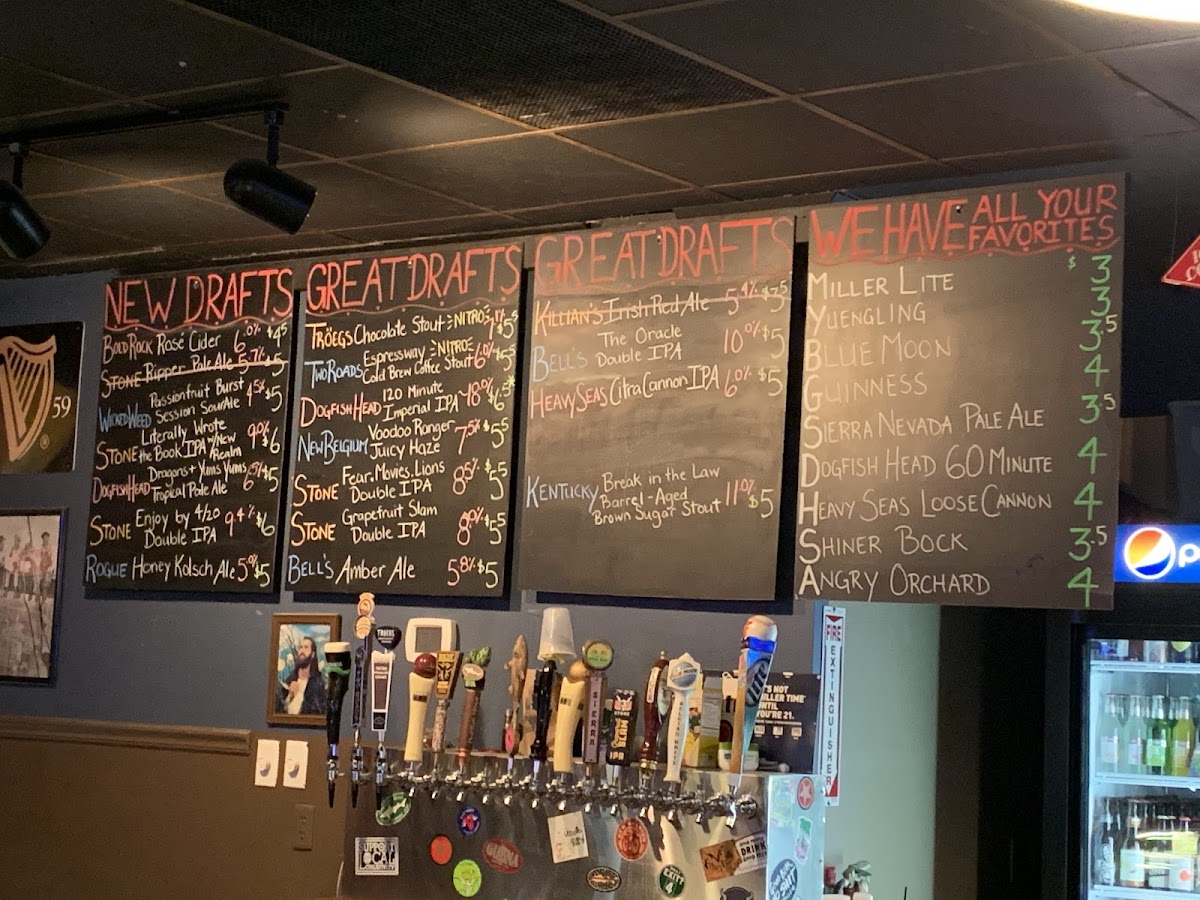 NEW DRAFTS
BOLD ROCK Rosé Cider 6.0% $4.5
STONE Ripper Pale Ale 5.7% $5
WICKED WEED Passionfruit Burst
Session Sour Ale 4.5% $5
STONE Literally Wrote
the Book IPA w/New
Realm 9.0% $6
DOGFISH HEAD Dragons + Yums Yums
Tropical Pale Ale 6.5% $5
STONE Enjoy by 4/20
Double IPA 9.4% $6
ROGUE Honey Kolsch Ale 5.0% $5
GREAT DRAFTS
TRÖEGS Chocolate Stout NITRO $5
TWO ROADS Espressway NITRO
Cold Brew Coffee Stout 6.0%
DOGFISH HEAD 120 Minute
Imperial IPA 18.0% $6.5*
NEW BELGIUM Voodoo Ranger
Juicy Haze 7.5% $5.5
STONE Fear.Movies.Lions
Double IPA 8.5% $5
STONE Grapefruit Slam
Double IPA 8.0%
BELL'S Amber Ale 5.8% $5
GREAT DRAFTS
KILLIAN'S Irish Red Ale 5.4% $3.5
BELL'S The Oracle
Double IPA 10.0% $5
HEAVY SEAS Citra Cannon IPA 6.0% $5
KENTUCKY Break in the Law
Barrel-Aged
Brown Sugar Stout 11.0% $5
WE HAVE ALL YOUR
FAVORITES
MILLER LITE $3
YUENGLING 3
BLUE MOON 3.5
GUINNESS 4
SIERRA NEVADA PALE ALE 3.5
DOGFISH HEAD 60 MINUTE 4
HEAVY SEAS LOOSE CANNON 4
SHINER BOCK 3.5
ANGRY ORCHARD 4
59
FIRE
EXTINGUISHER
IT'S NOT
MILLER TIME
UNTIL
YOU'RE 21.
TRÖEGS
SIERRA
STONE
IPA
LOCAL
EXIT
4
DRINK